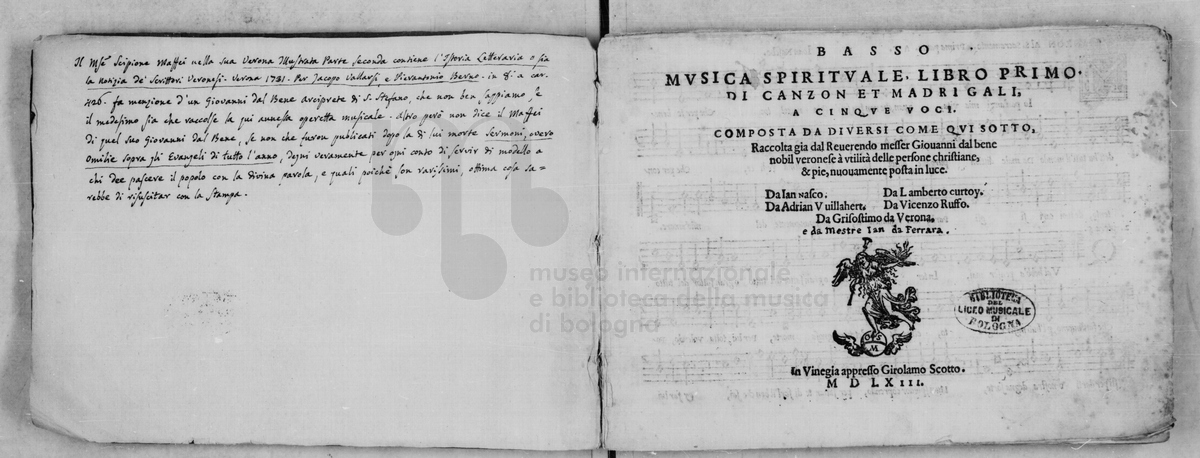 Il Mse. Scipione Maffei nella sua Verona Illustrata Parte seconda contiene l'Istoria Letteraria o sia
la notizia de' Scrittori Veronesi. Verona 1731. Per Jacopo Vallarsi e Pierantonio Berno. in 8: a car.
426. fa menzione d'un Giovanni dal Bene arciprete di S. Stefano, che non ben sappiamo, se
il medesimo sia che raccolse la qui annessa operetta musicale. Altro però non dice il Maffei
di quel suo Giovanni dal Bene, se non che furon publicati dopo la di lui morte Sermoni, overo
Omilie sopra gli Evangeli di tutto l'anno, degni veramente per ogni conto di servir di modello a
chi dee pascere il popolo con la divina parola, e quali poichè son rarissimi, ottima cosa sa=
rebbe di risuscitar con la stampa.
BASSO
MVSICA SPIRITVALE, LIBRO PRIMO.
DI CANZON ET MADRIGALI,
A CINQVE VOCI.
COMPOSTA DA DIVERSI COME QVI SOTTO,
Raccolta gia dal Reuerendo messer Giouanni dal bene
nobil veronese à vtilità delle persone christiane,
& pie, nuouamente posta in luce.
Da Ian nasco. Da Lamberto curtoy.
Da Adrian Vuillahert. Da Vicenzo Ruffo.
Da Grisostimo da Verona.
e da Mestre Ian da Ferrara.
O S
M
BIBLIOTECA
DEL
LICEO MUSICALE
DI
BOLOGNA
In Vinegia appresso Girolamo Scotto.
M D LXIII.
museo internazionale
e biblioteca della musica
di bologna